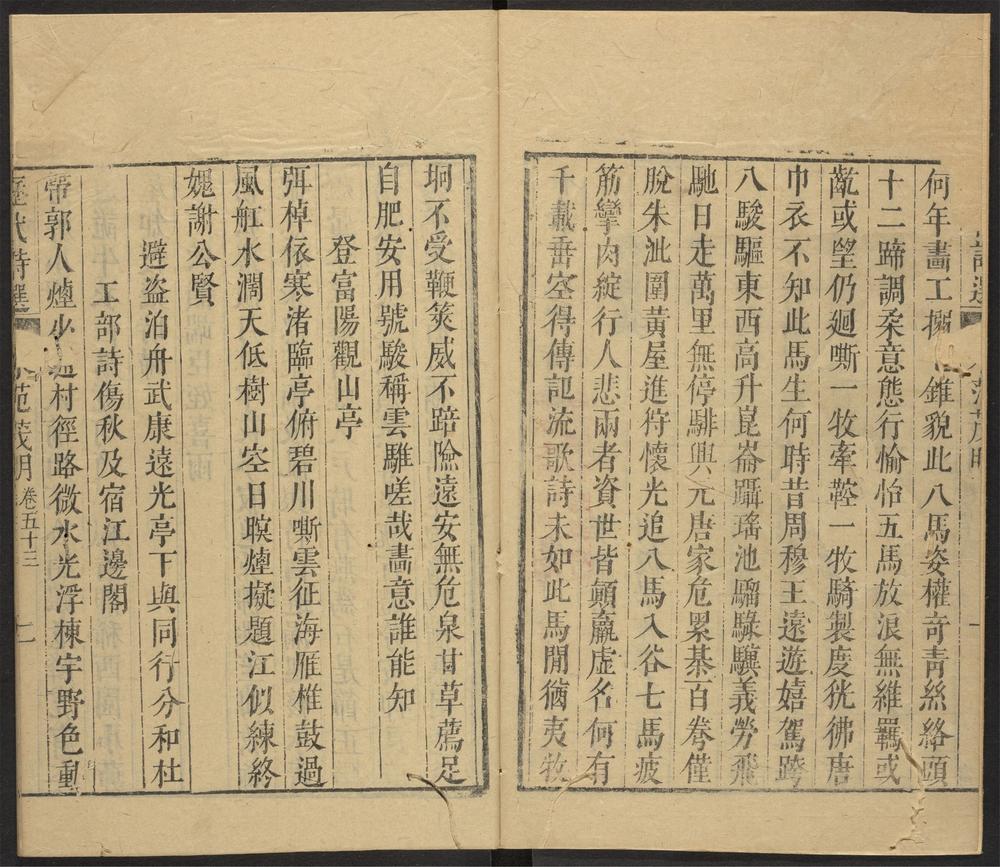 何年畫工搦錐貌此八馬姿權奇青絲絡頭
十二蹄調柔意態行愉怡五馬放浪無維羈或
齕或望仍迴嘶一牧牽鞚一牧騎製度彷彿唐
巾衣不知此馬生何時昔周穆王遠遊嬉駕跨
八駿驅東西高升崑崙躡瑤池騮騄驥義勞飛
馳日走萬里無停騑興元唐家危累棊百眷僅
脫朱泚圍黃屋進狩懷光追八馬入谷七馬疲
筋攣肉綻行人悲兩者資世皆顛羸虛名何有
千載垂空得傳記流歌詩未如此馬閒猶夷牧
坰不受鞭筴威不踣險遠安無危泉甘草薦足
自肥安用號駿稱雲騅嗟哉畫意誰能知
登富陽觀山亭
弭棹依寒渚臨亭俯碧川嘶雲征海雁椎鼓過
風舡水濶天低樹山空日暝煙擬題江似練終
媿謝公賢
避盜泊舟武康遠光亭下與同行分和杜
工部詩傷秋及宿江邊閣
帶郭人煙少村徑路微水光浮棟宇野色動
歷代詩選 范茂明 卷五十三